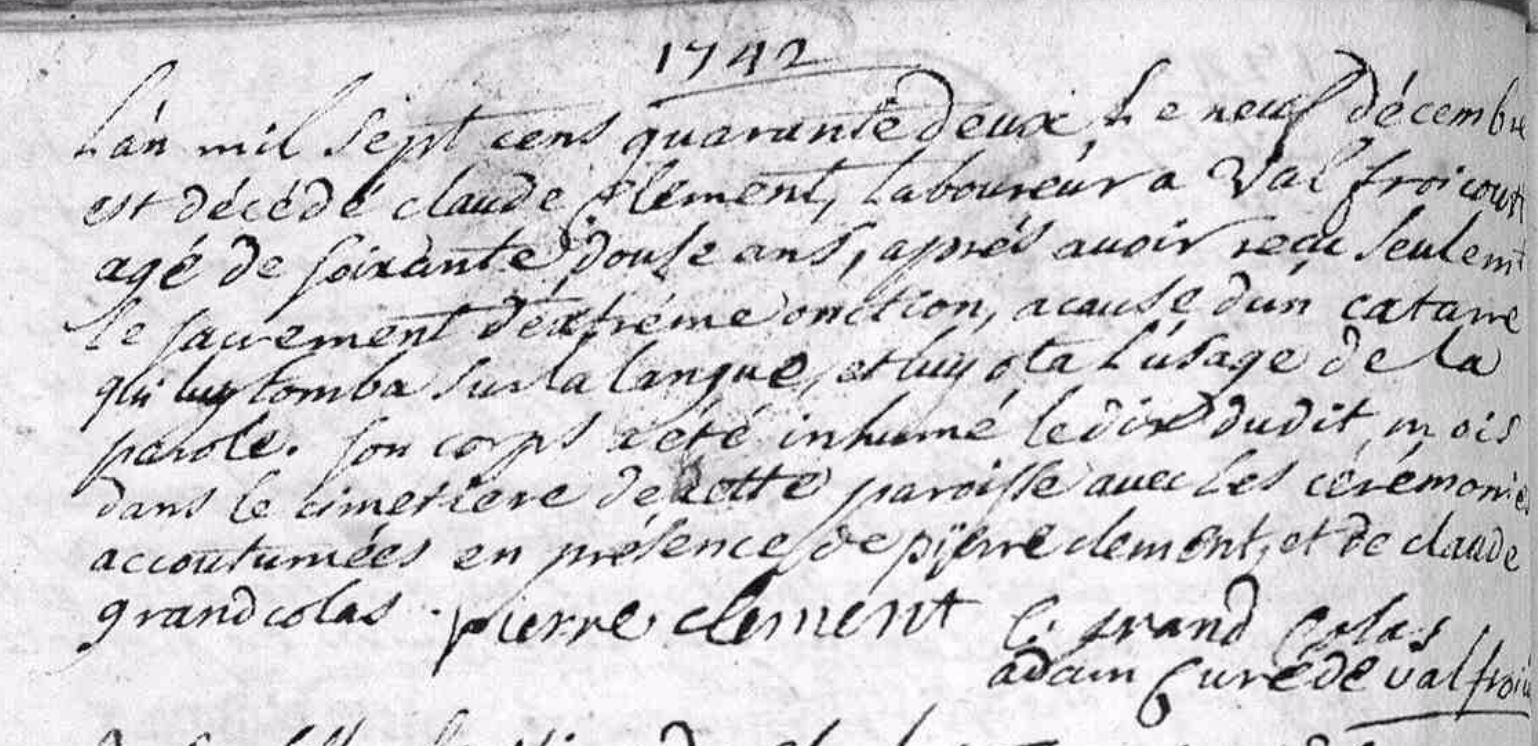 1742
L'an mil sept cens quarante deux, Le neuf décembre
est décédé claude Clement, Laboureur a Valfroicourt
agé de soixante, douse ans, aprés avoir reçu seulemt
le sacrement d'extréme onction, acause d'un catarre
qui luy tomba sur la langue, et luy ota L'usage de la
parole. son corps a été inhumé le dix dudit mois
dans le cimetiere de cette paroisse avec les cérémonies
accoutumées en présence de pierre clement, et de claude
grandcolas. pierre clement C. grand Colas
adam Curé de valfroic